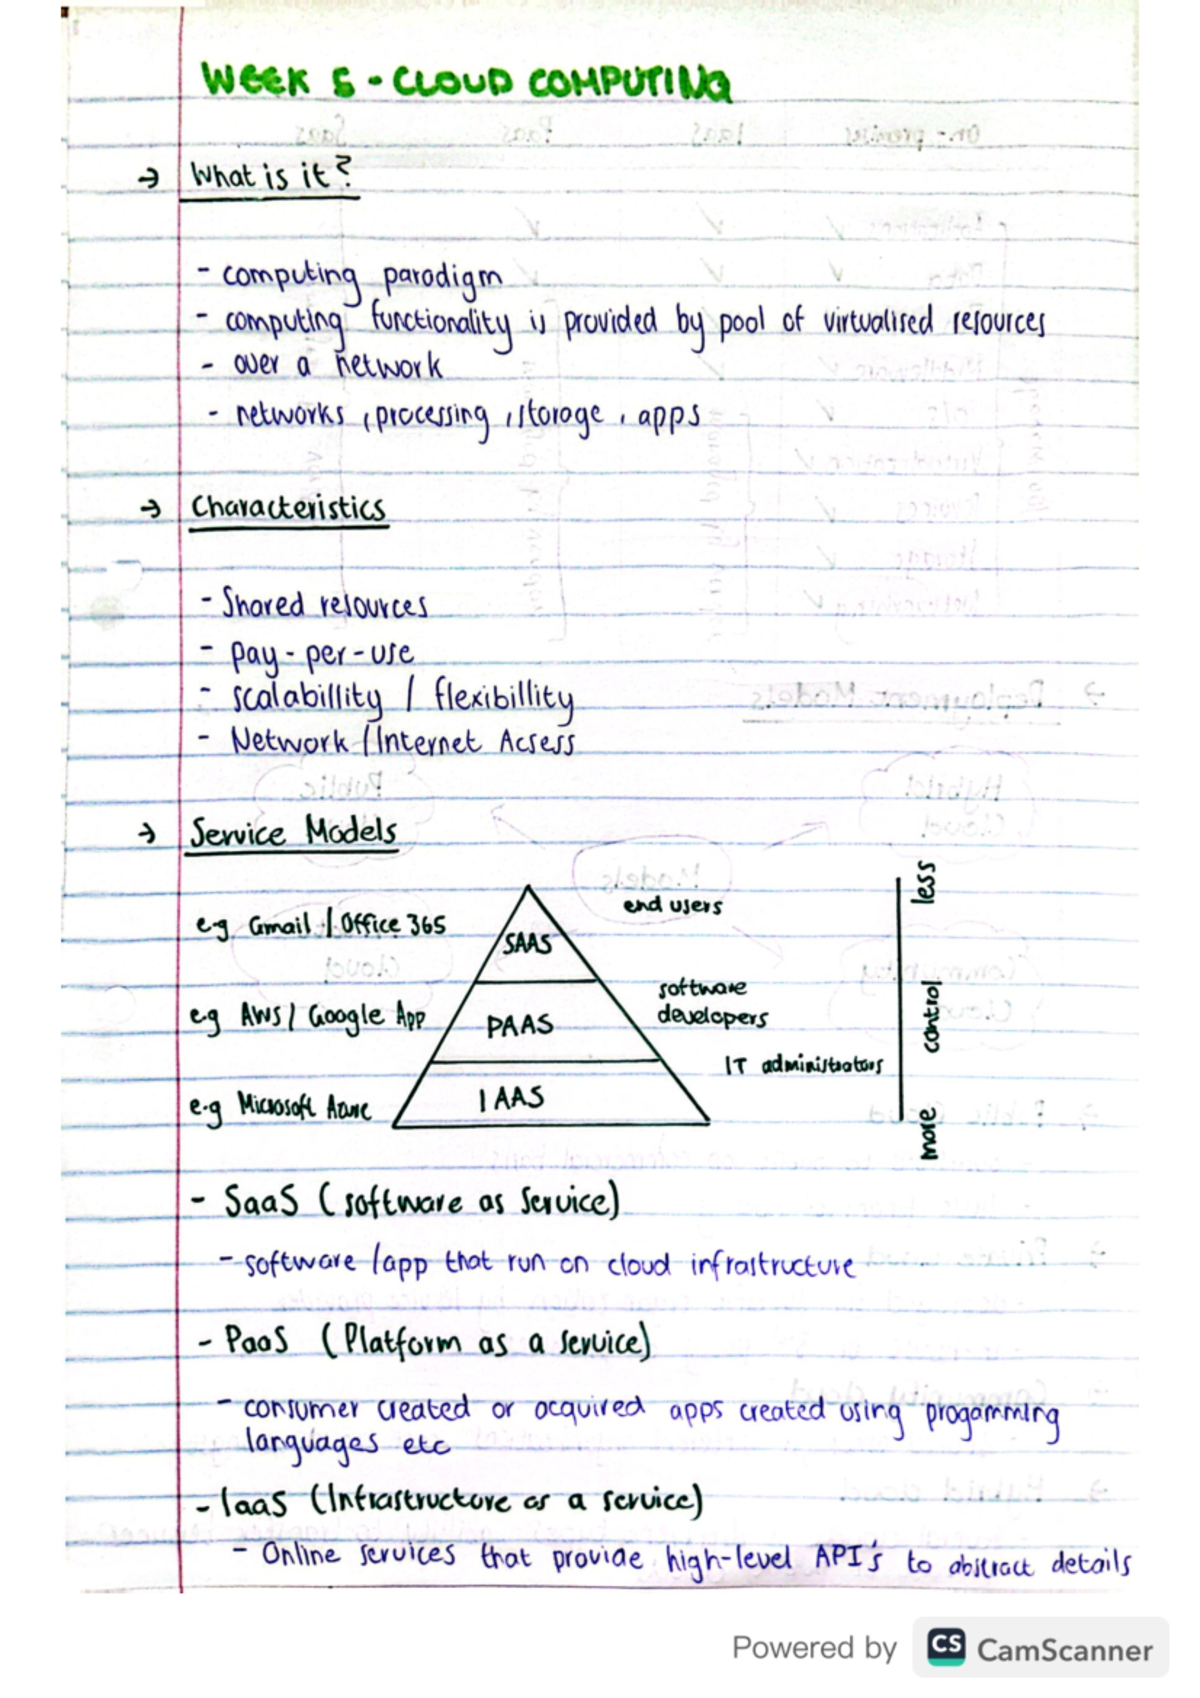 WEEK 5 - CLOUD COMPUTING
→ What is it?
- computing paradigm
- computing functionality is provided by pool of virtualised resources
- over a network
- networks, processing, storage, apps
→ Characteristics
- Shared resources
- pay-per-use
- scalabillity / flexibillity
- Network / Internet Acsess
→ Service Models
end users
less
e.g Gmail / Office 365
SAAS
software
developers
e.g AWS / Google App
PAAS
control
IT administrators
e.g Microsoft Azure
IAAS
more
- SaaS (software as service)
- software / app that run on cloud infrastructure
- PaaS (Platform as a service)
- consumer created or acquired apps created using progamming
languages etc
- IaaS (Infrastructure as a service)
- Online services that provide high-level API's to abstract details
Powered by CS CamScanner